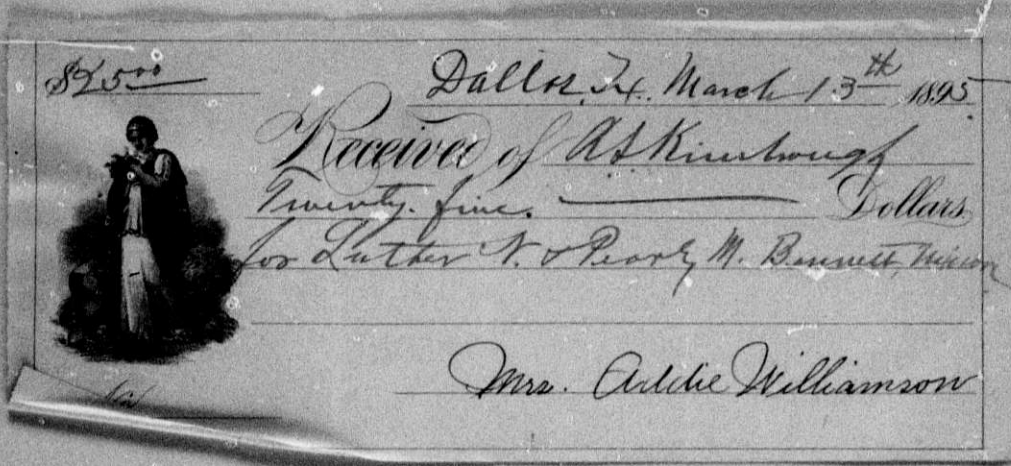 $25.00
Dallas, Tx. March 13th 1895
Received of A S Kimbrough
Twenty. five. Dollars
for Luther N. & Pearly M. Bennett, minors
Mrs. Addie Williamson